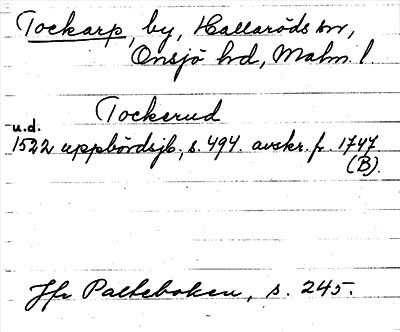 Tockarp, by, Hallaröds sn,
Onsjö hd, Malm. l.
Tockerud
u.d.
1522 uppbördsjb., s. 494. avskr. fr. 1747.
(B).
Jfr Palteboken, s. 245.